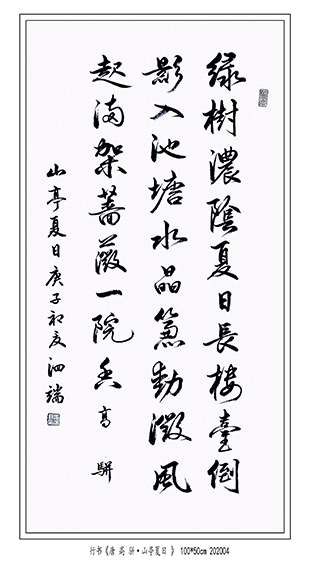 绿樹濃陰夏日長楼臺倒
影入池塘水晶簾動微風
起满架薔薇一院香 高駢
山亭夏日庚子初夏泗端
行书《唐 高 骈•山亭夏日 》 100*50cm 202004